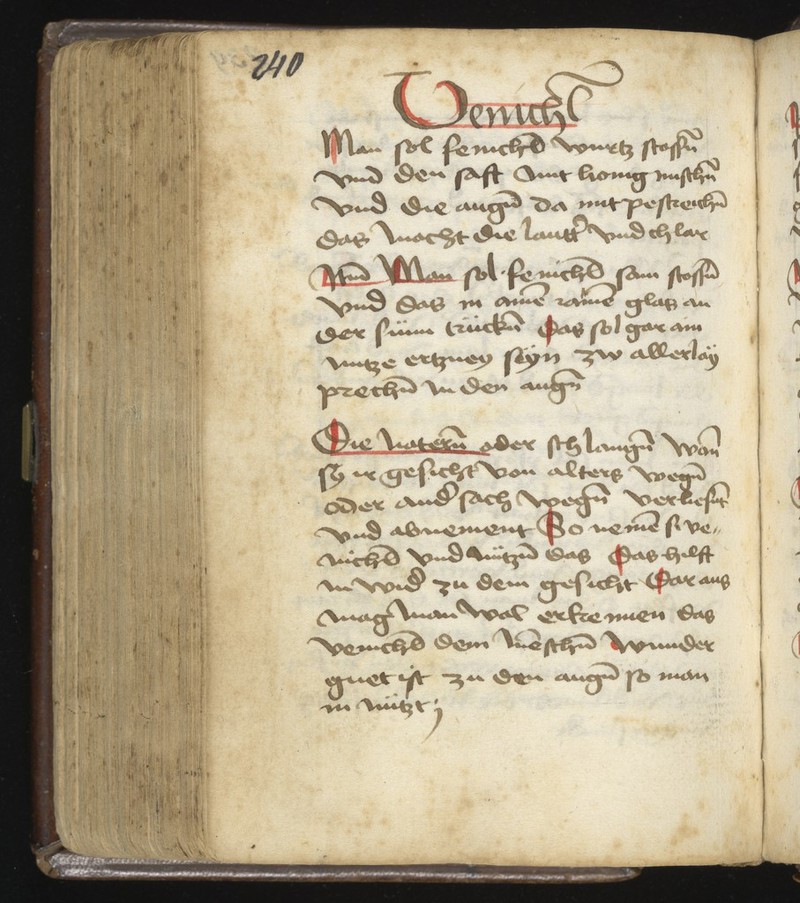 240
Venichl
Man sol fenichel wurtz stossn̄
vnd den saft mit honig mischn̄
vnd die augn̄ da mit pestreichn̄
das macht die lautter vnd chlar
Itm̄ Man sol fenichel sam stossn̄
vnd das in ainē rainē glas an
der sünn trückn̄ Das sol gar ain
nutze ertzney seyn zw allerlay
prechn̄ in den augn̄
Die natern̄ oder schlangn̄ wan̄
sy ir gesicht von alters wegn̄
oder and̕ sach wegn̄ verliesn̄t
vnd abnement So nemē si ve„
nichel vnd nützn̄ das Das hilft
in wid̕ zu dem gesicht Dar aus
mag man wal erkennen das
venichel dem mēschn̄ wunder
guet ist zu den augn̄ so man
in nützt